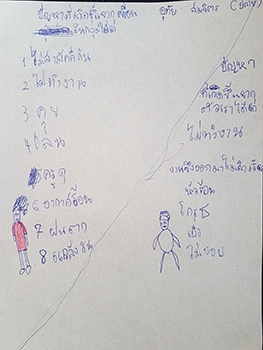 ปัญหาที่เกิดขึ้นจากเพื่อน
ในกลุ่มได้แก่
1 ไม่สามัคคีกัน
2 ไม่ทำงาน
3 คุย
4 เล่น
5 ครูดุ
6 อากาศร้อน
7 ฝนตก
8 แสดง
อุทัย
ปัญหา
ที่เกิดขึ้นจาก
ตัวเราได้แก่
ไม่ทำงาน
งานจึงออกมาไม่
โกรธ
เบื่อ
ไม่ชอบ